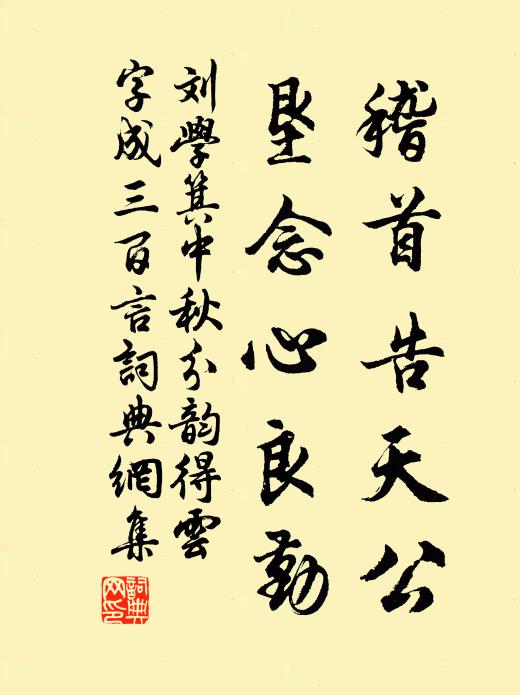 稽首告天公
垦念心良勤
刘學箕中秋分韵得雲
字成三百言詞典網集
詞典
网印